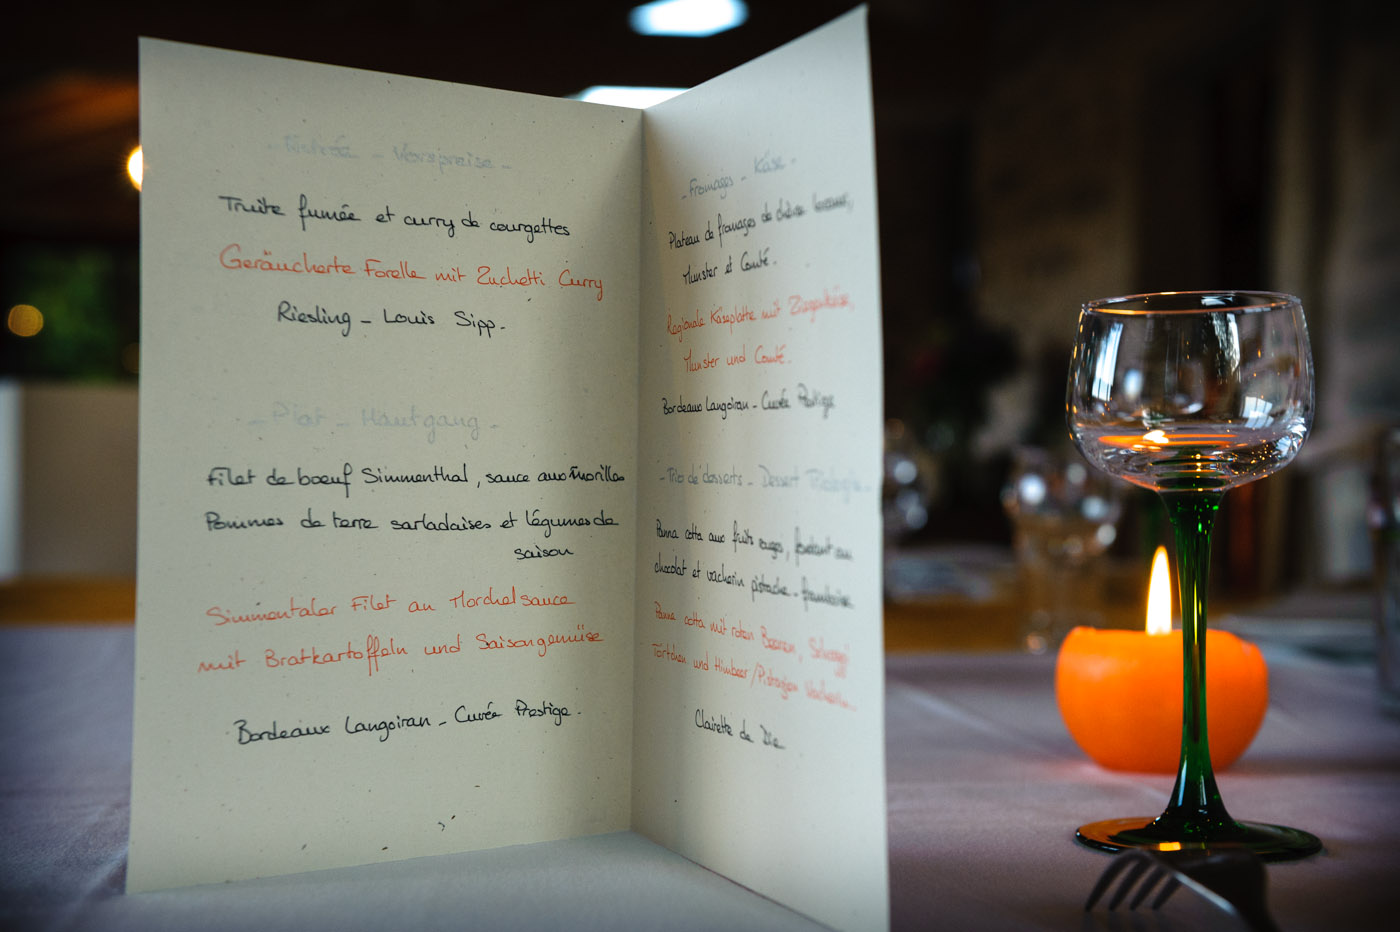 - Entrée - Vorspreise -
Truite fumée et curry de courgettes
Geräucherte Forelle mit Zuchetti Curry
Riesling - Louis Sipp.
- Plat - Hautgang -
Filet de boeuf Simmenthal, sauce aux morilles
Pommes de terre sarladaises et légumes de
saison
Simmentaler Filet an Morchelsauce
mit Bratkartoffeln und Saisongemüse
Bordeaux Langoiran - Cuvée Prestige.
- Fromages - Käse -
Plateau de fromages de chèvre
Munster et Comté.
Regionale Käseplatte mit Ziegenkäse,
Munster und Comté.
Bordeaux Langoiran - Cuvée Prestige
- Trio de desserts - Dessert Trilogie -
Panna cotta aux fruits rouges, fondant au
chocolat et vacherin pistache - framboise
Panna cotta mit roten Beeren, Schoggi
Törtchen und Himbeer/Pistazien Vacherin.
Clairette de Die